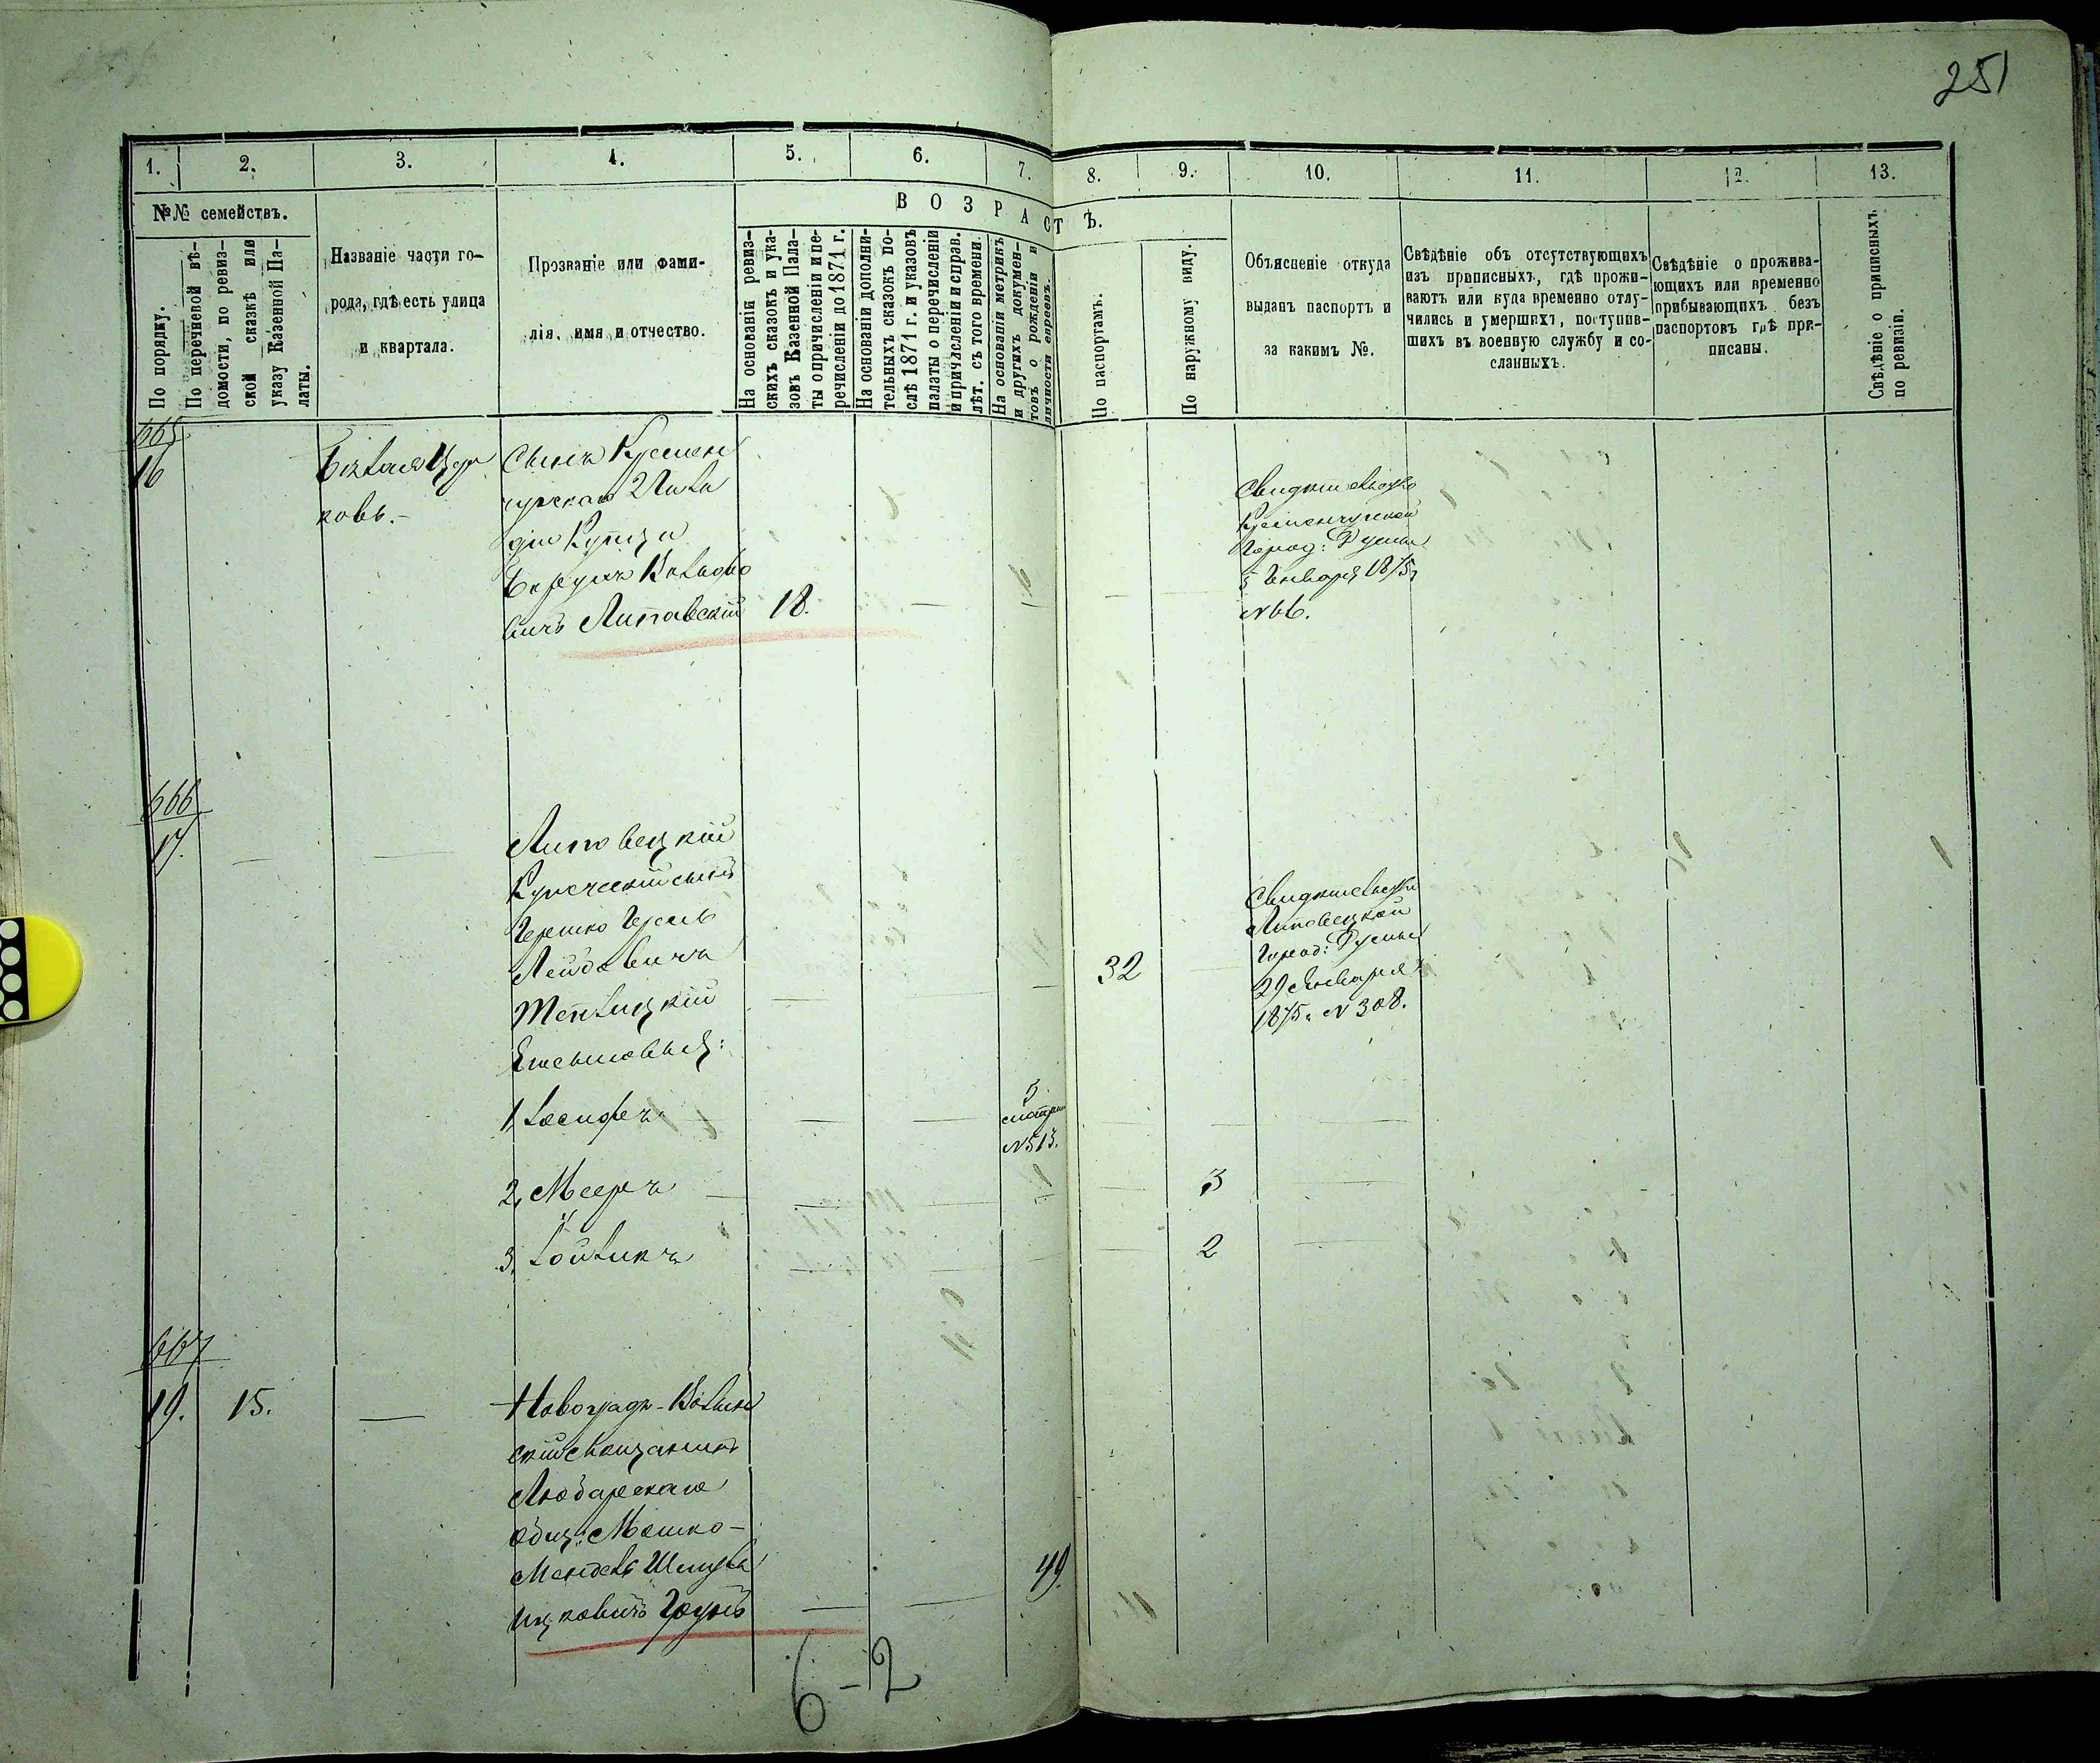 251
1.
2.
3.
4.
5.
6.
7.
8.
9.
10.
11.
12.
13.
№№ семействъ.
По порядку.
По перечневой вѣ-
домости, по ревиз-
ской сказкѣ или
указу Казенной Па-
латы.
Названіе части го-
рода, гдѣ есть улица
и квартала.
Прозваніе или фами-
лія, имя и отчество.
ВОЗРАСТЪ.
На основаніи ревиз-
скихъ сказокъ и ука-
зовъ Казенной Пала-
ты о причисленіи и пе-
речисленіи до 1871 г.
На основаніи дополни-
тельныхъ сказокъ по-
слѣ 1871 г. и указовъ
палаты о перечисленіи
и причисленіи и справ.
лѣт. съ того времени.
На основаніи метрикъ
и другихъ докумен-
товъ о рожденіи и
личности евреевъ.
По паспортамъ.
По наружному виду.
Объясненіе откуда
выданъ паспортъ и
за какимъ №.
Свѣдѣніе объ отсутствующихъ
изъ приписныхъ, гдѣ прожи-
ваютъ или куда временно отлу-
чились и умершихъ, поступив-
шихъ въ военную службу и со-
сланныхъ.
Свѣдѣніе о прожива-
ющихъ или временно
прибывающихъ безъ
паспортовъ гдѣ при-
писаны.
Свѣдѣніе о приписныхъ
по ревизіи.
665
16
ковъ.-
Сынъ Кремен
чугскаго 2 Гиль
діи Купца
Вольфо
вичъ Липавскій
18.
Свидѣтельство
Кременчугской
Город: Думы
5 Января 1875 г
№ 66.
666
17.
Липовецкій
Купеческій сынъ
Гершко Герсъ
Лейбовичъ
Теплицкій
Сыновья:
32
Свидѣтельство
Липовецкой
Город: Думы
29 Января
1875 г № 308.
1, Іосифъ
5
метрик
№ 513.
2, Мееръ
3
3, Іойликъ
2
667
19.
15.
Новоградъ-Волын
скій мѣщанинъ
Любарскаго
общ: Мошко-
Мендель Шмуль
Ицковичъ
49.
6-2